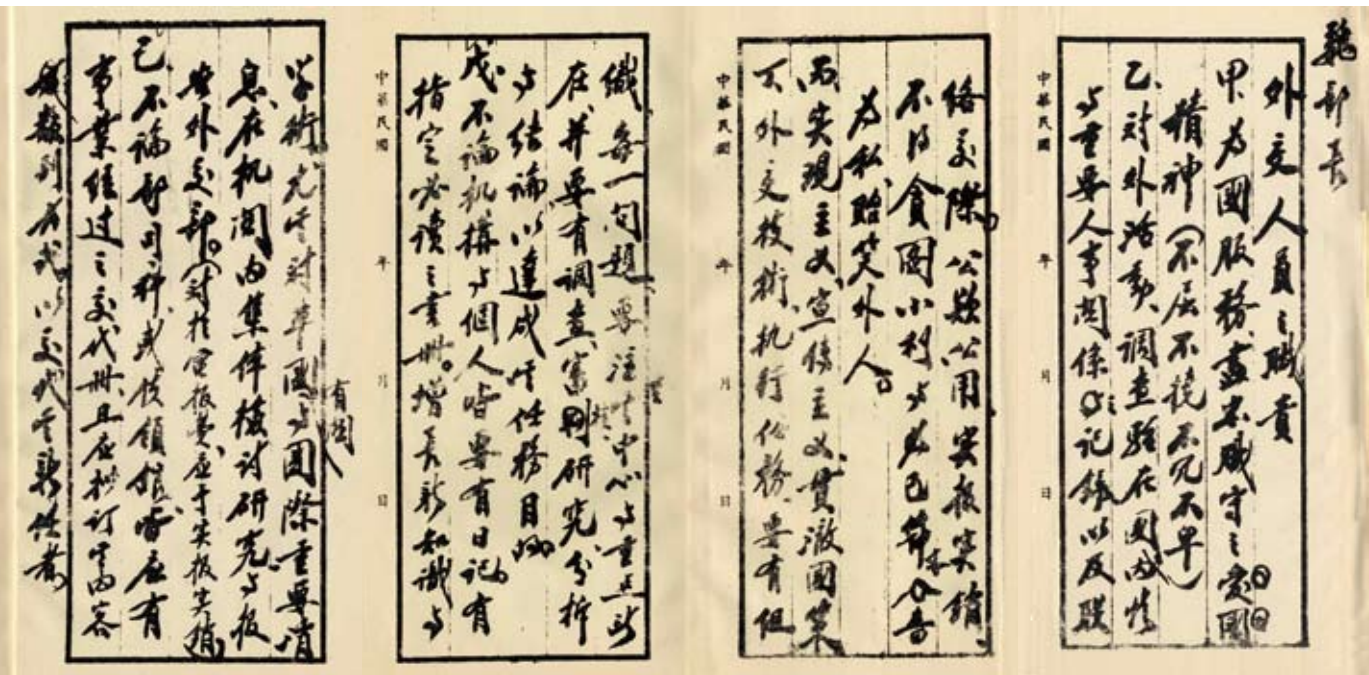 魏部長
外交人員之職責
甲、為國服務、盡忠職守之愛國
精神（不屈不撓不亢不卑）
乙、对外活動、調查駐在國內情
与重要人事関係之記錄以及联
中華民國 年 月 日
絡交際。公款公用实报实銷
不得貪圖小利与
為私、貽笑外人。
丙、实現主义、宣傳主义、貫澈國策
丁、外交技術、执行任務、要有组
中華民國 年 月 日
織每一问題要注意其中心与重点所
在、并要有調查、審判研究分析
与结論以達成其任務目的。
戊、不論机構与個人皆要有日記、有
指定必讀之書冊。增長新知識与
中華民國 年 月 日
学術尤其对本國与國際有関重要消
息、在机関内集体檢讨研究、与报
告外交部。（对於電报费应予实报实銷）
己、不論部司科或使領館、皆应有
事業經过之交代冊且应抄订其内容
以交代其新任者